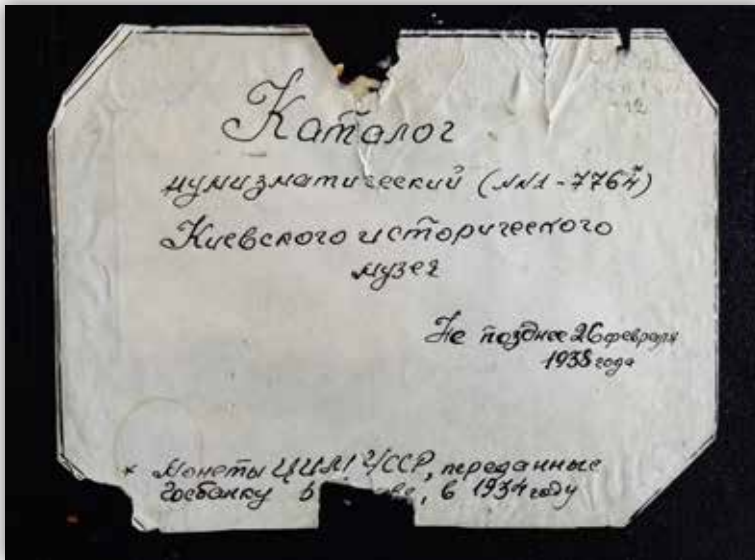 Каталог
нумизматический (№№1-7764)
Киевского исторического
музея
Не позднее 26 февраля
1938 года
* Монеты ЦИМ УССР, переданные
Госбанку в 1934 году